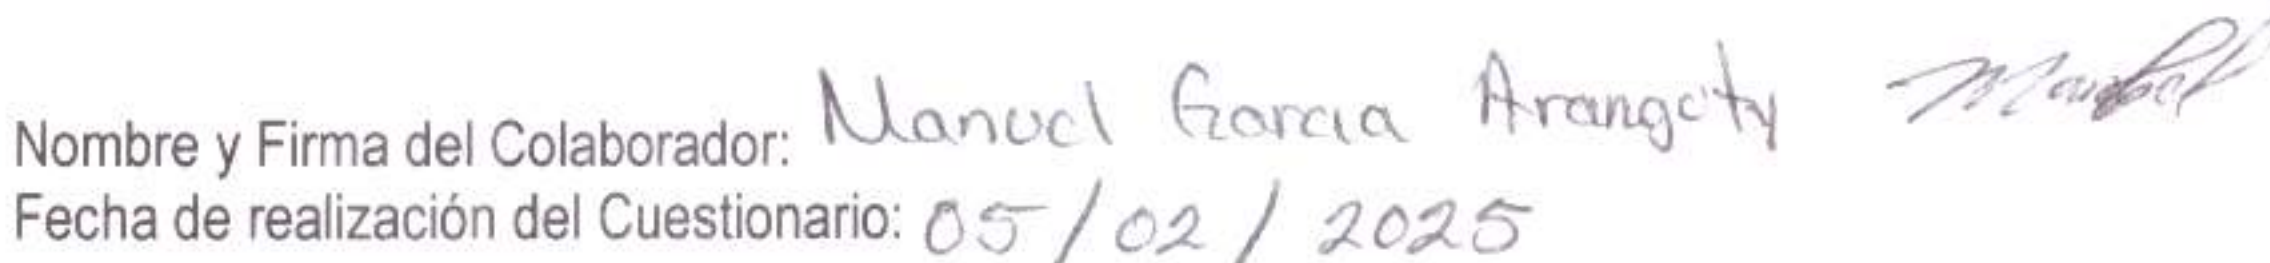 Nombre y Firma del Colaborador: Manuel Garcia Arangoty
Fecha de realización del Cuestionario: 05/02/2025